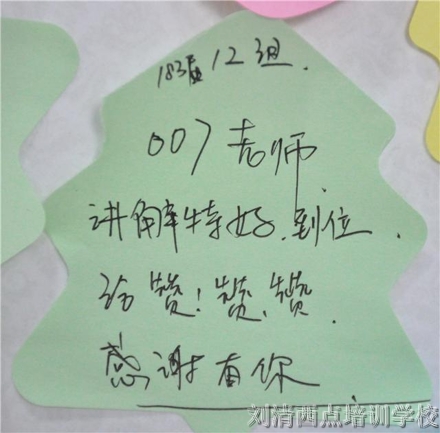 183届12组.
007老师
讲解特好.到位.
给赞!赞,赞.
感谢有你
刘清西点培训学校